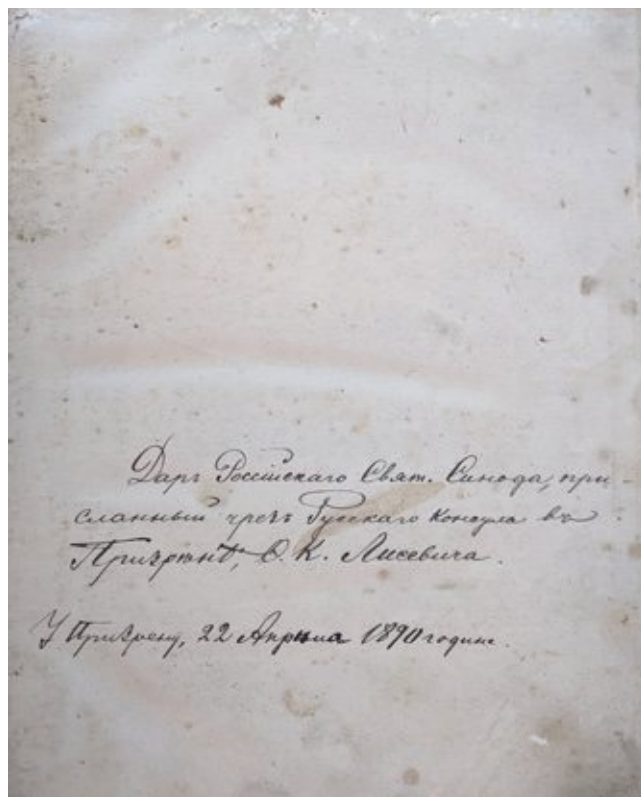 Даръ Россійскаго Свят. Синода, при-
сланный чрезъ Русскаго Консула въ
Призрѣнѣ, О. К. Лисевича.
У Призрену, 22 Априла 1890 године.